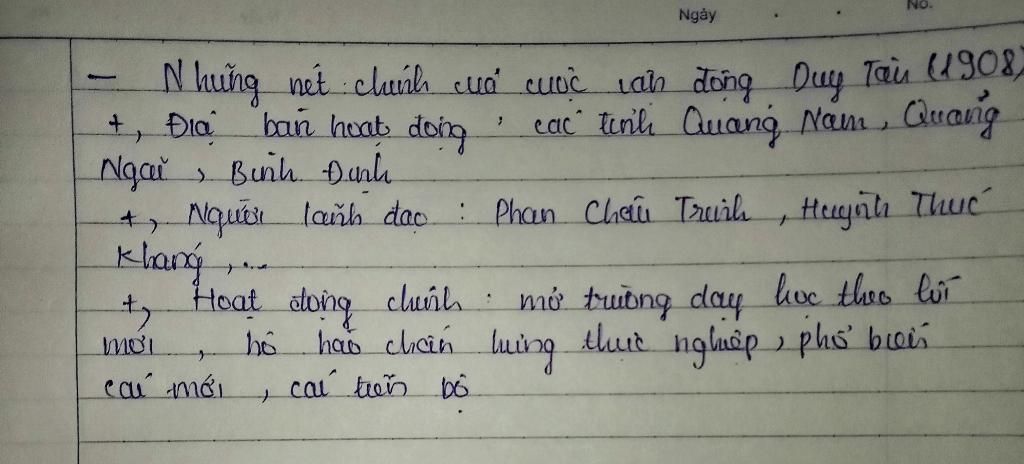 Ngày No.
- Những nét chính cuả cuộc vận động Duy Tân (1908)
+, Địa bàn hoạt động : các tỉnh Quảng Nam, Quảng
Ngãi, Bình Định
+, Người lãnh đạo : Phan Châu Trinh, Huỳnh Thúc
Kháng,...
+, Hoạt động chính : mở trường dạy học theo lối
mới, hô hào chấn hưng thực nghiệp, phổ biến
cái mới, cái tiến bộ